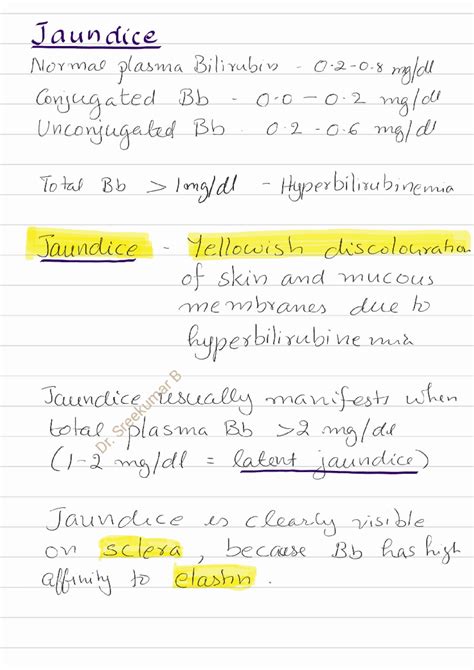 Jaundice
Normal plasma Bilirubin - 0.2-0.8 mg/dl
Conjugated Bb - 0.0 - 0.2 mg/dl
Unconjugated Bb - 0.2 - 0.6 mg/dl
Total Bb > 1mg/dl - Hyperbilirubinemia
Jaundice - Yellowish discolouration
of skin and mucous
membranes due to
hyperbilirubinemia
Dr. Sreekumar B
Jaundice usually manifests when
total plasma Bb >2 mg/dl
(1-2 mg/dl = latent jaundice)
Jaundice is clearly visible
on sclera, because Bb has high
affinity to elastin.